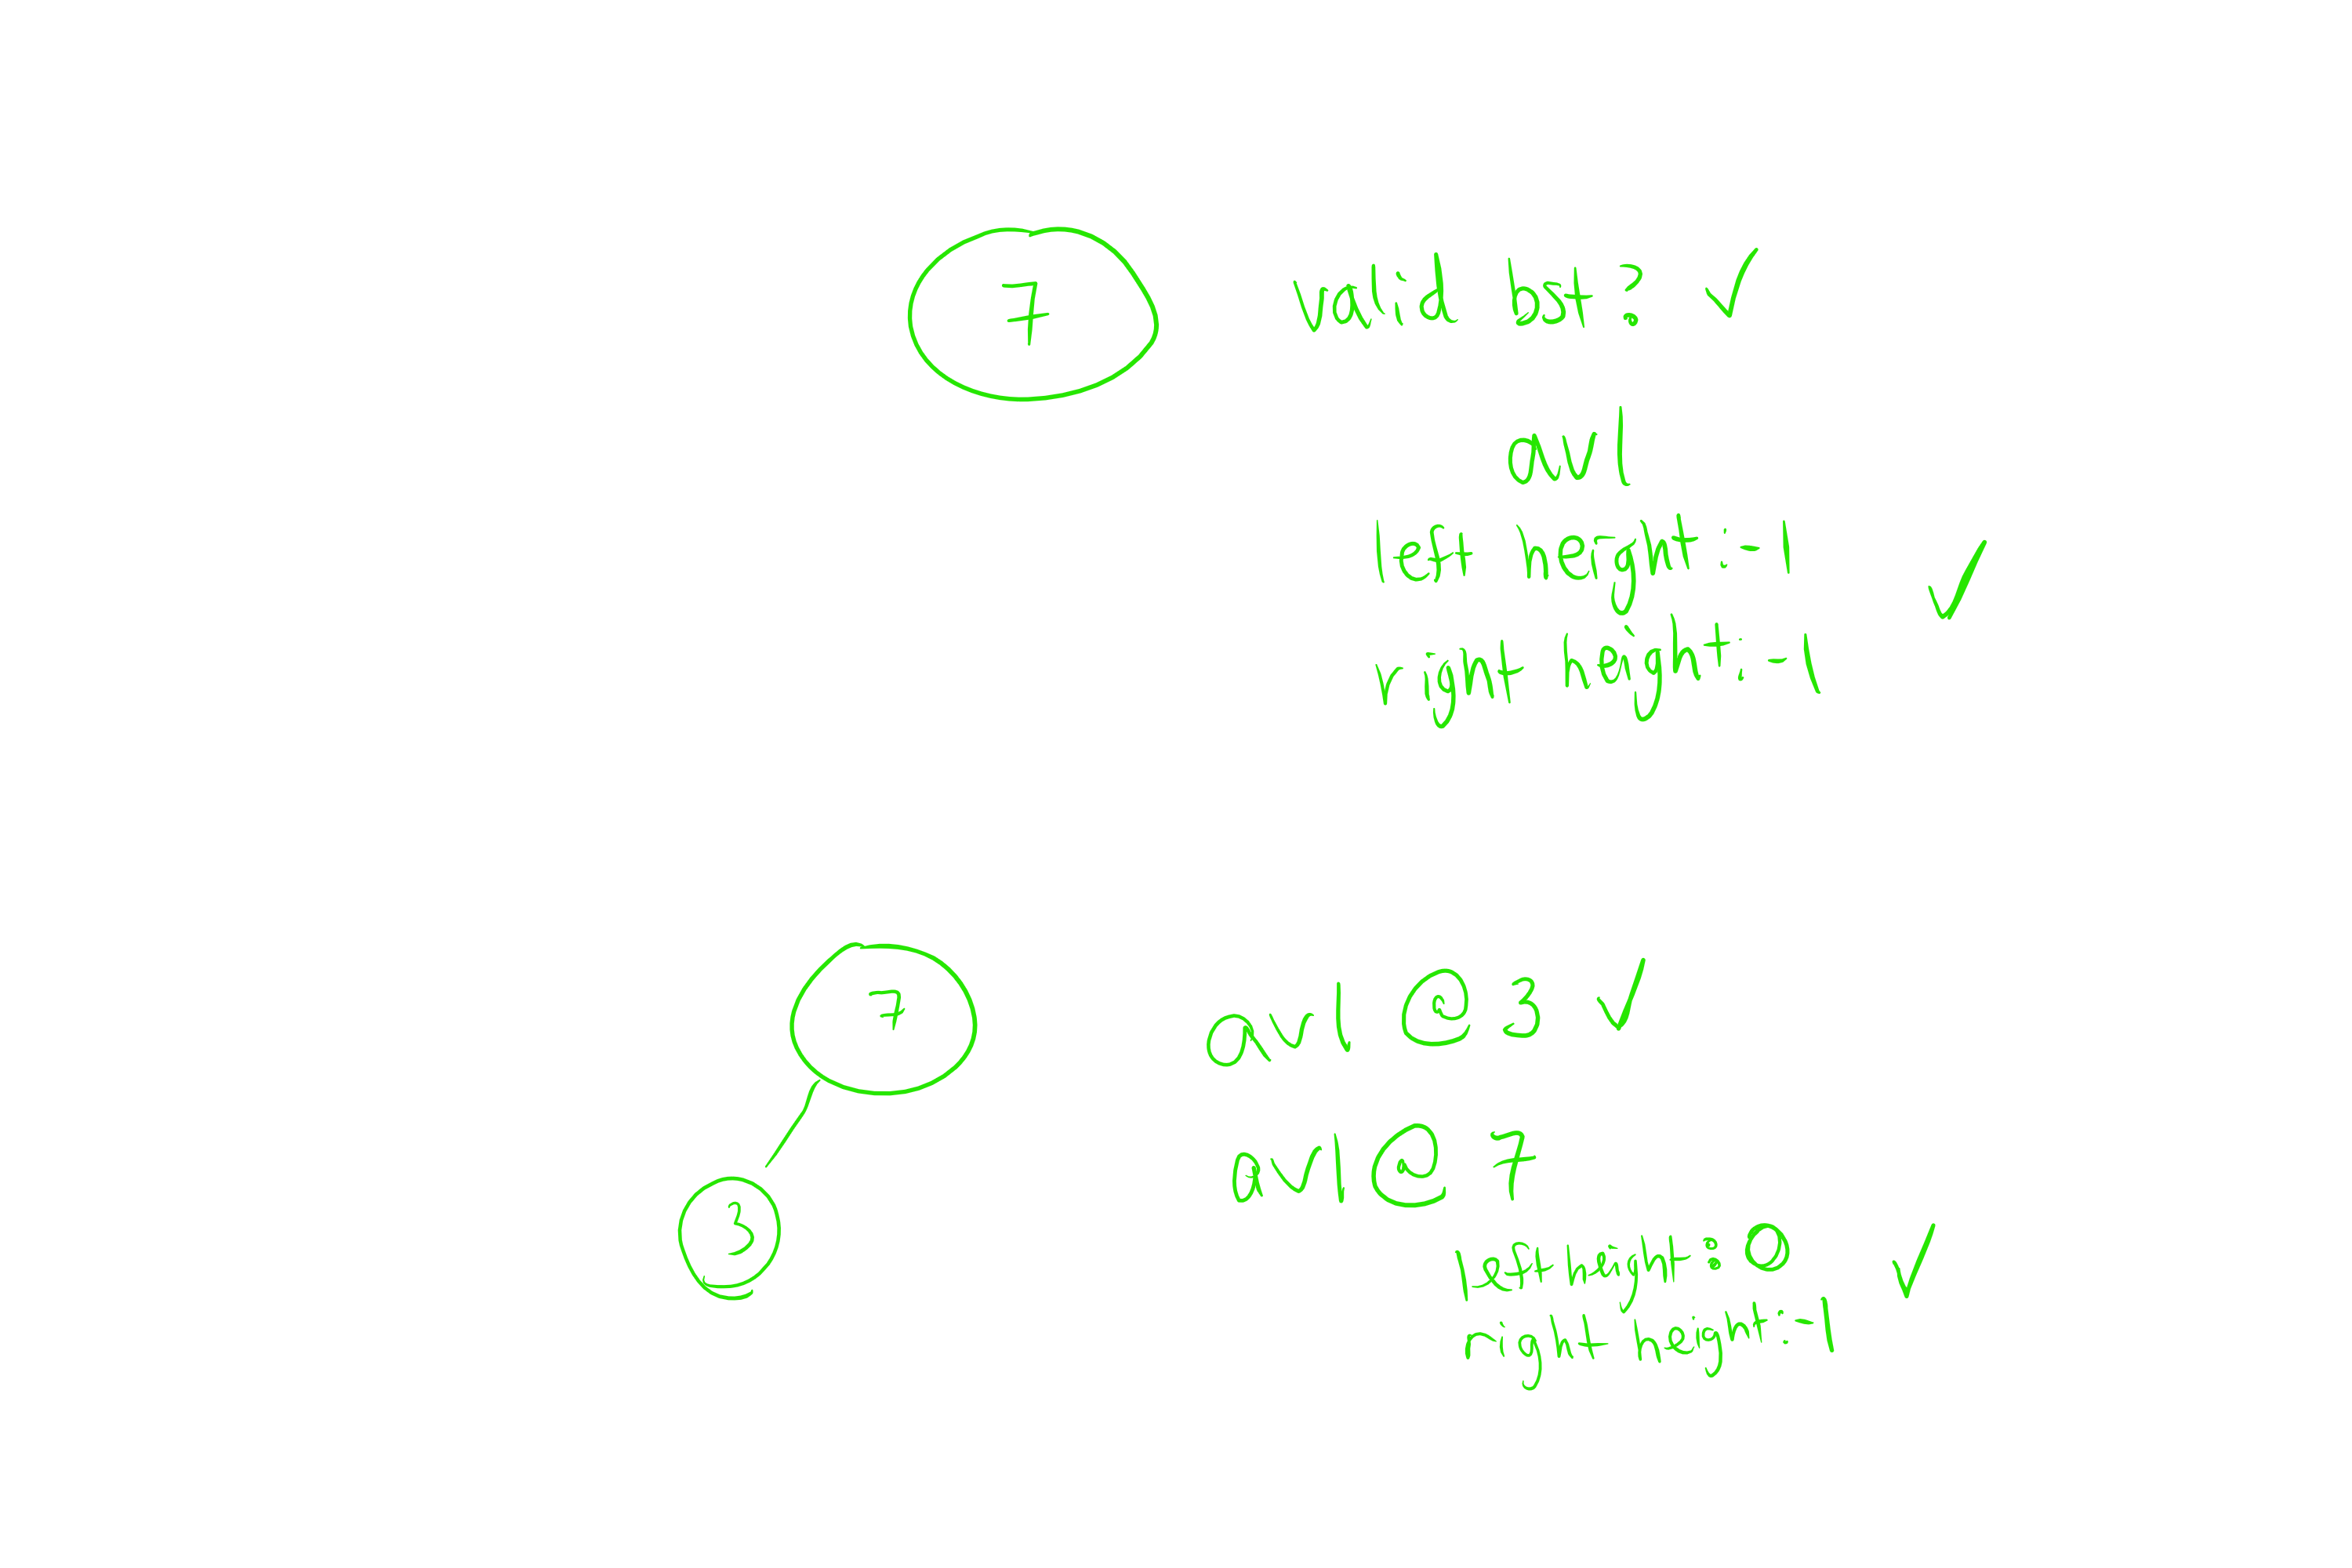 7
valid bst? ✓
avl
left height: -1
right height: -1 ✓
7
avl @ 3 ✓
avl @ 7
3
left height: 0
right height: -1 ✓